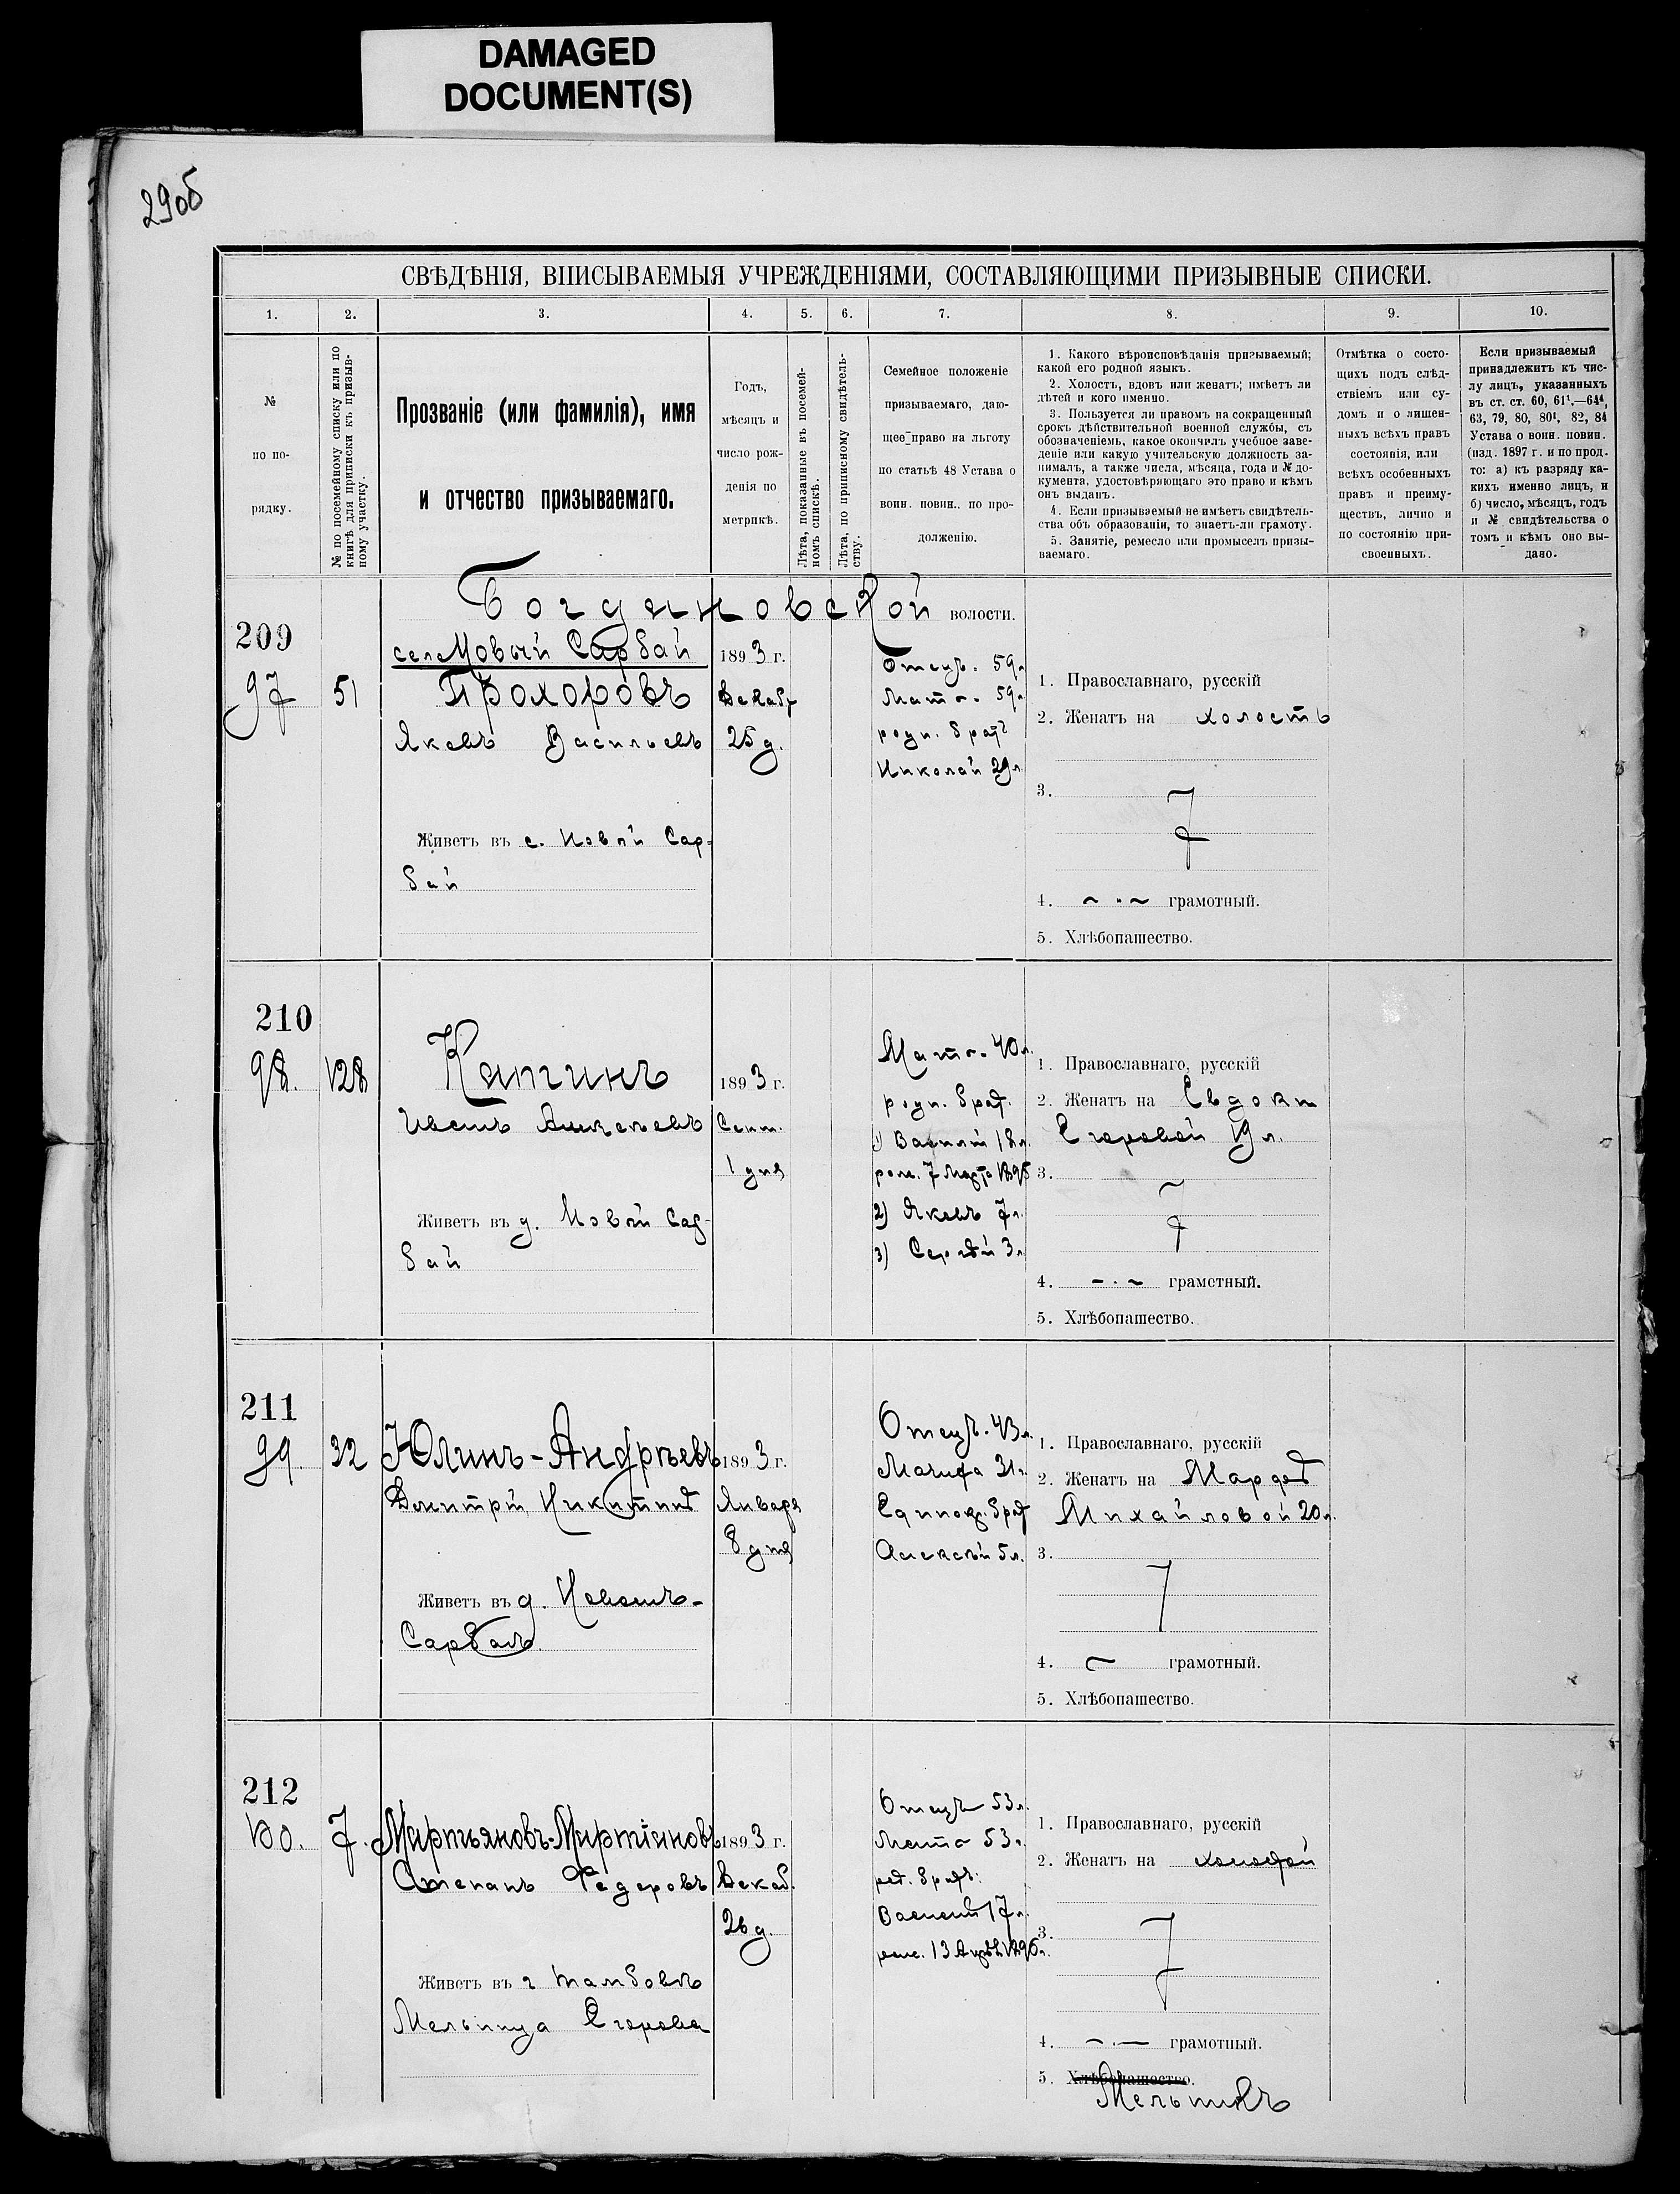 DAMAGED
DOCUMENT(S)
29об
СВѢДѢНІЯ, ВПИСЫВАЕМЫЯ УЧРЕЖДЕНІЯМИ, СОСТАВЛЯЮЩИМИ ПРИЗЫВНЫЕ СПИСКИ.
1. 2. 3. 4. 5. 6. 7. 8. 9. 10.
№
по по-
рядку.
№ по посемейному списку или по
книгѣ для приписки къ призыв-
ному участку.
Прозваніе (или фамилія), имя
и отчество призываемаго.
Годъ,
мѣсяцъ и
число рож-
денія по
метрикѣ.
Лѣта, показанные въ посемей-
номъ спискѣ.
Лѣта, по приписному свидѣтель-
ству.
Семейное положеніе
призываемаго, даю-
щее право на льготу
по статьѣ 48 Устава о
воин. повин.. по про-
долженію.
1. Какого вѣроисповѣданія призываемый;
какой его родной языкъ.
2. Холостъ, вдовъ или женатъ; имѣетъ ли
дѣтей и кого именно.
3. Пользуется ли правомъ на сокращенный
срокъ дѣйствительной военной службы, съ
обозначеніемъ, какое окончилъ учебное заве-
деніе или какую учительскую должность за-
нималъ, а также числа, мѣсяца, года и № до-
кумента, удостовѣряющаго это право и кѣмъ
онъ выданъ.
4. Если призываемый не имѣетъ свидѣтель-
ства объ образованіи, то знаетъ-ли грамоту.
5. Занятіе, ремесло или промыселъ призы-
ваемаго.
Отмѣтка о состо-
щихъ подъ слѣд-
ствіемъ или су-
домъ и о лишен-
ныхъ всѣхъ правъ
состоянія, или
всѣхъ особенныхъ
правъ и преиму-
ществъ, лично и
по состоянію при-
своенныхъ.
Если призываемый
принадлежитъ къ чис-
лу лицъ, указанныхъ
въ ст. ст. 60, 61¹.—64⁴,
63, 79, 80, 80¹, 82, 84
Устава о воин. повин.
(изд. 1897 г. и по прод.
то: а) къ разряду ка-
кихъ именно лицъ, и
б) число, мѣсяцъ, годъ
и № свидѣтельства о
томъ и кѣмъ оно вы-
дано.
Богдановской волости.
209
97
51
сел Новый Сарбай
Прохоровъ
Яковъ Васильевъ
Живетъ въ с. Новой Сар-
бай
1893 г.
Декабр
25 д.
Отецъ. 59 л
Мать. 59 л
родн. братъ
Николай 29 л
1. Православнаго, русскій
2. Женатъ на холостъ
3.
4. грамотный.
5. Хлѣбопашество.
210
98.
128
Катинъ
Иванъ Алексѣевъ
Живетъ въ д. Новой Сар-
бай
1893 г.
Сент.
1 дня
Мать. 40 л.
родн. брат.
1) Василій 18 л.
рож. 7 Марта 1895
2) Яковъ 7 л.
3) Сергѣй 3 л
1. Православнаго, русскій
2. Женатъ на Евдокіи
Егоровой 19 л.
3.
4. грамотный.
5. Хлѣбопашество.
211
99.
32
Юлинъ-Андреевъ
Дмитрій Никитинъ
Живетъ въ д. Новомъ-
Сарбаѣ
1893 г.
Января
8 дня
Отецъ. 43 л.
Мачиха 31 л
Единокр. брат
Алексѣй 5 л.
1. Православнаго, русскій
2. Женатъ на
Михайловой 20 л.
3.
4. грамотный.
5. Хлѣбопашество.
212
100.
7.
Мартьяновъ-Мартіановъ
Степанъ Федоровъ
Живетъ въ г Тамбовѣ
Мельница Егорова
1893 г.
Декаб.
26 д.
Отецъ 53 л.
Мать 53 л.
род. братъ:
Василій 17 л.
рож. 13 Апрѣля 1896 г.
1. Православнаго, русскій
2. Женатъ на холостой
3.
4. грамотный.
5. Хлѣбопашество.
Мельникъ